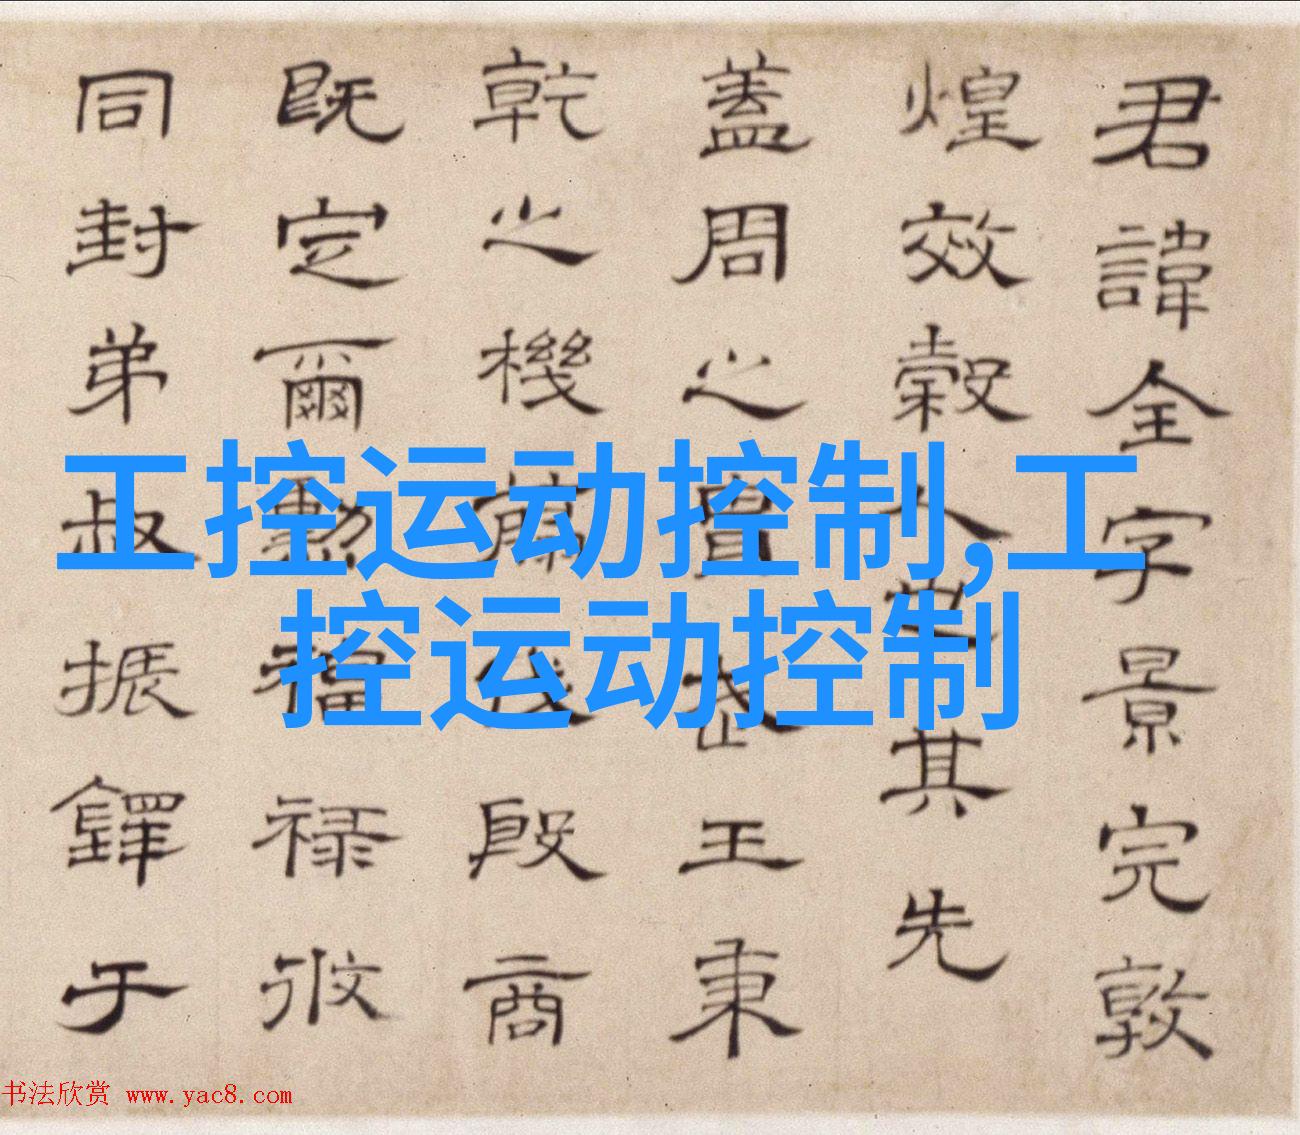 君諱全字景完敦
煌效穀人也其先
蓋周之胄武王秉
乾之機翦伐殷商
既定爾勳福祿攸
同封弟叔振鐸于
工控运动控制,工
控运动控制
书法欣赏 www.yac8.com